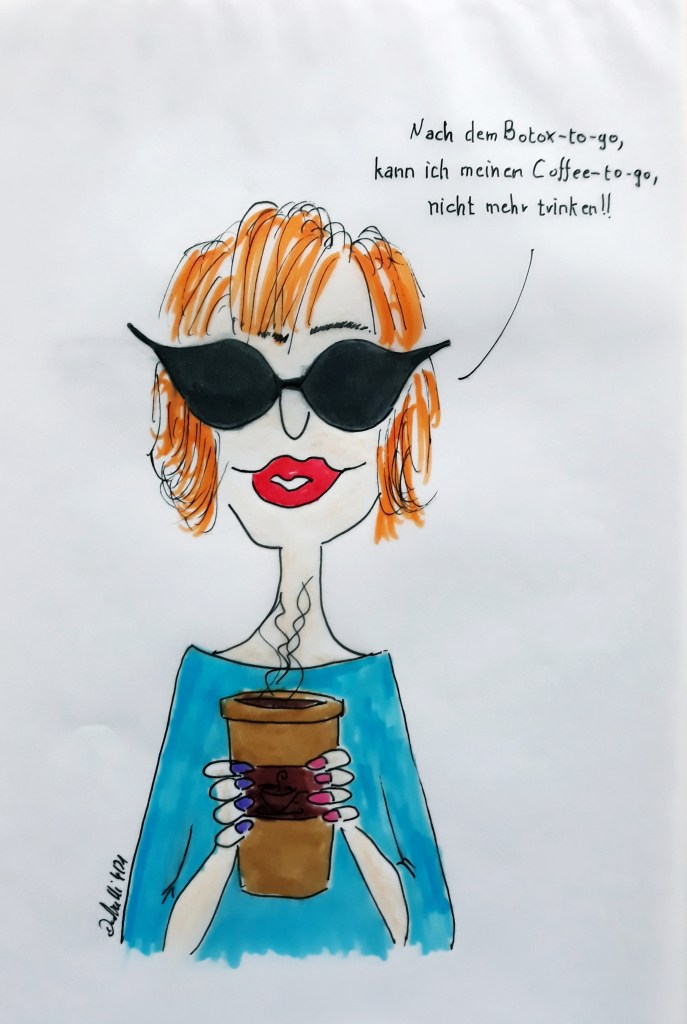 Nach dem Botox-to-go,
kann ich meinen Coffee-to-go,
nicht mehr trinken!!